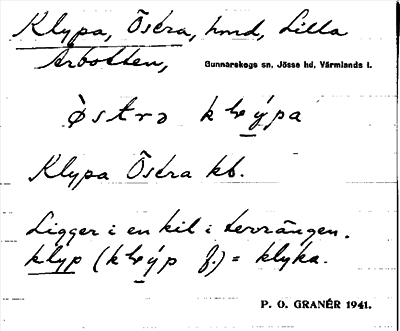 Klypa, Östra, hmd, Lilla
Årbotten, Gunnarskogs sn, Jösse hd, Värmlands l.
Klypa Östra kb.
Ligger i en kil i terrängen.
klyp = klyka.
P. O. GRANÉR 1941.